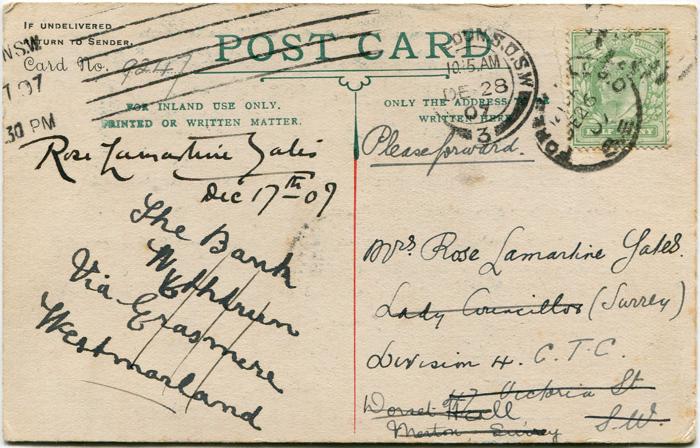 IF UNDELIVERED
RETURN TO SENDER.
Card No. 9247
POST CARD
FOR INLAND USE ONLY.
PRINTED OR WRITTEN MATTER.
ONLY THE ADDRESS TO BE
WRITTEN HERE.
N.S.W
7 07
.30 PM
LONDON.S.W
10.15.AM
DE 28
07
3
HALFPENNY
Rose Lamartine Yates
Dec 17th 07
The Bank
Wythburn
Via Grasmere
Westmorland
Please forward.
Mrs Rose Lamartine Yates.
Lady Councillor (Surrey)
Division 4. C.T.C.
47 Victoria St
Dorset Hall S.W.
Merton, Surrey